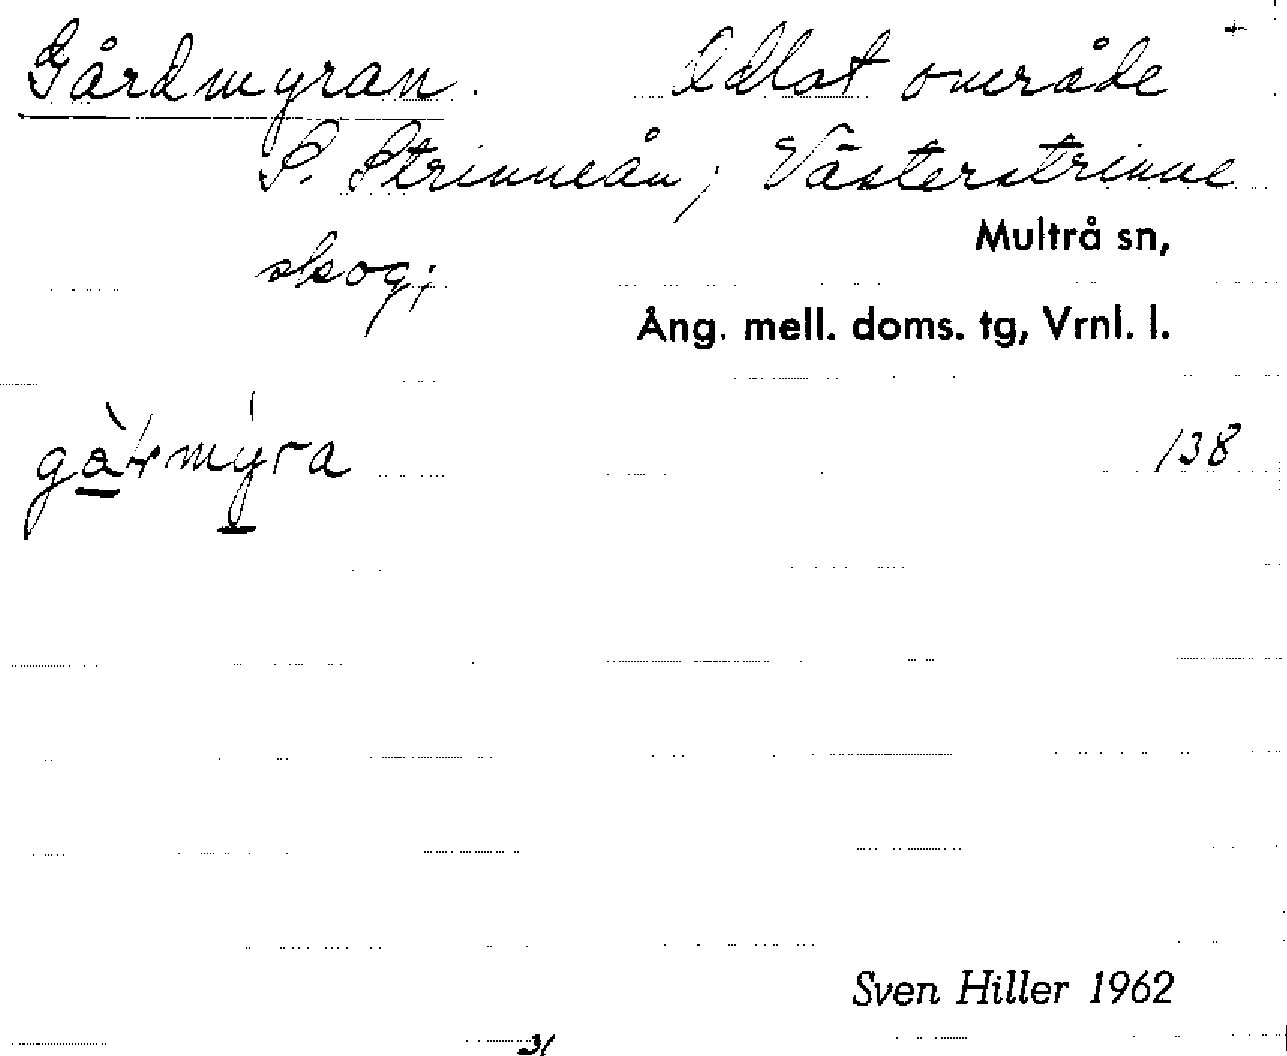 Gårdmyran. Odlat område
S. Strinneån; Västerstrinne
Multrå sn,
skog;
Ång. mell. doms. tg, Vrnl. l.
138
Sven Hiller 1962
31